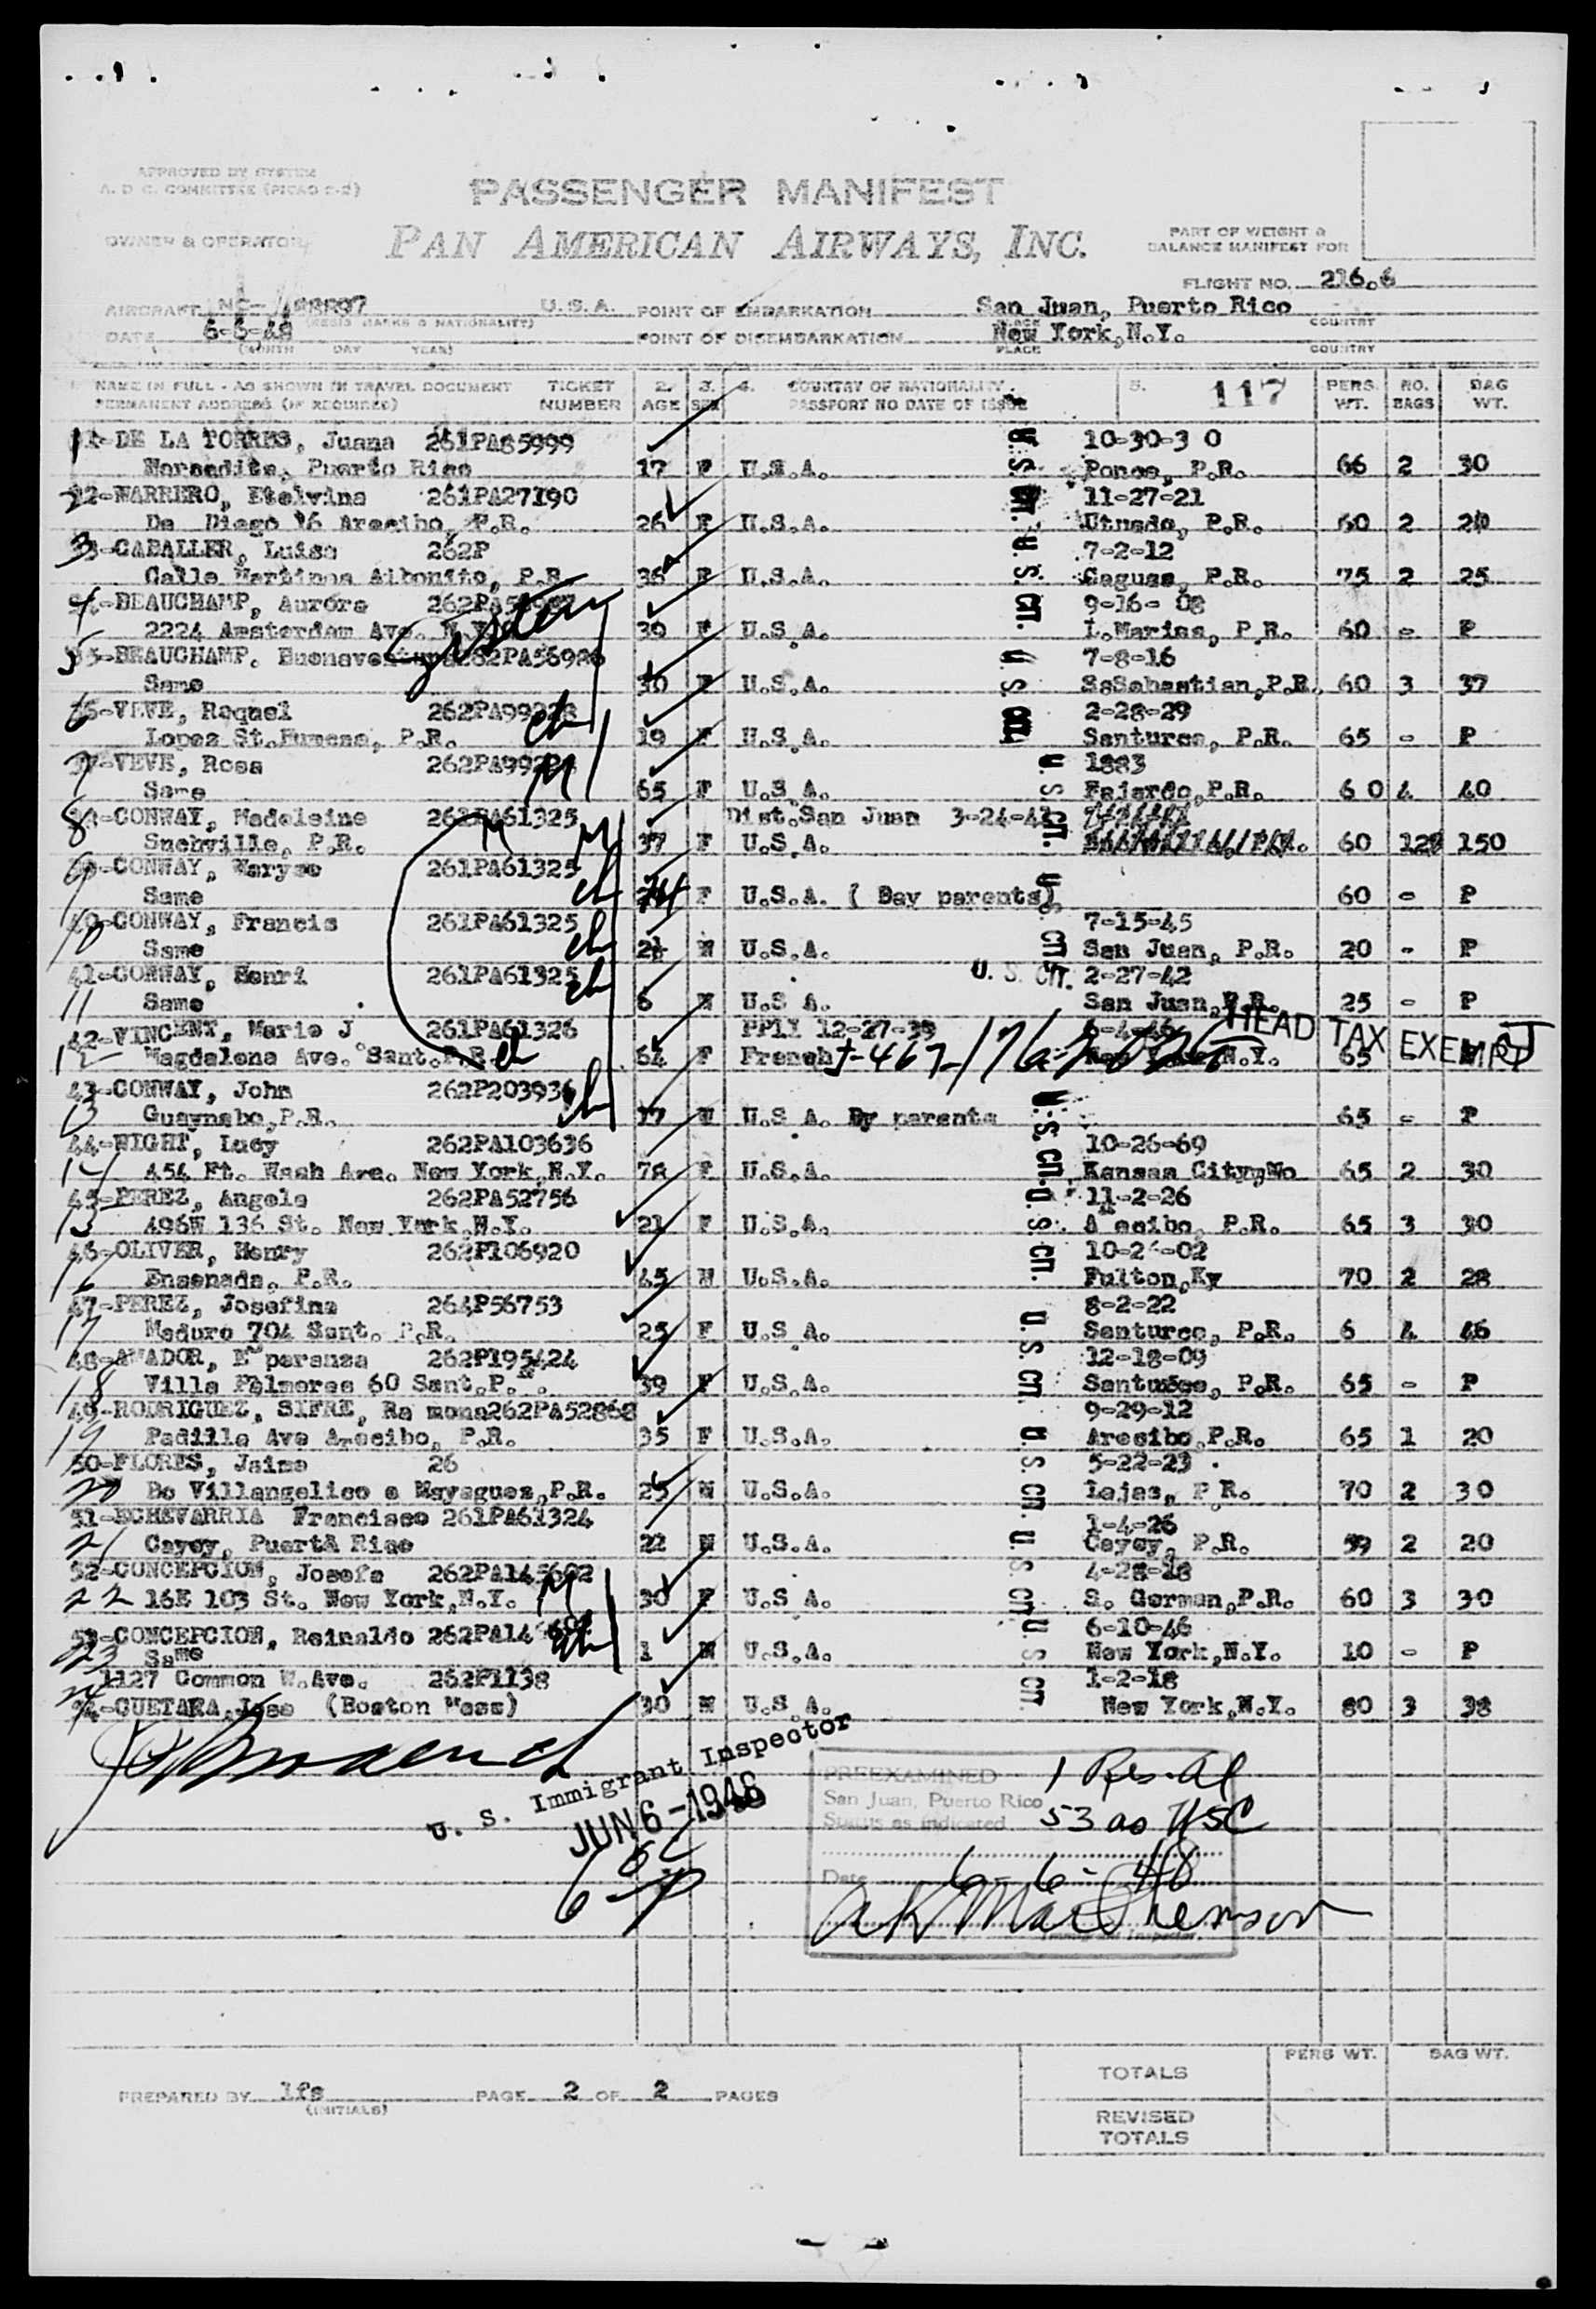 APPROVED BY SYSTEM
A. D. C. COMMITTEE (PICAO 2-2)
PASSENGER MANIFEST
OWNER & OPERATOR
PAN AMERICAN AIRWAYS, INC.
PART OF WEIGHT &
BALANCE MANIFEST FOR
FLIGHT NO. 216.6
AIRCRAFT NC-88837 U.S.A. POINT OF EMBARKATION San Juan, Puerto Rico
(REGIS MARKS & NATIONALITY) PLACE COUNTRY
DATE 6-6-48 POINT OF DISEMBARKATION New York,N.Y.
(MONTH DAY YEAR) PLACE COUNTRY
NAME IN FULL - AS SHOWN IN TRAVEL DOCUMENT TICKET 2. 3. 4. COUNTRY OF NATIONALITY 5. 117 PERS. NO. BAG
PERMANENT ADDRESS (IF REQUIRED) NUMBER AGE SEX PASSPORT NO DATE OF ISSUE WT. BAGS WT.
1 DE LA TORRES, Juana 261PA85999 10-30-3 0
Mersedita, Puerto Rico 17 F U.S.A. Ponce, P.R. 66 2 30
MARRERO, Etelvina 261PA27190 11-27-21
De Diego 16 Arecibo, P.R. 26 F U.S.A. Utuado, P.R. 60 2 20
3 CABALLER, Luisa 262P 7-2-12
Calle Martinos Aibonito, P.R. 36 F U.S.A. Caguas, P.R. 75 2 25
4 BEAUCHAMP, Aurora 9-16- 08
2224 Amsterdam Ave. N.Y. 39 F U.S.A. L.Marias, P.R. 60 - P
5 BEAUCHAMP. Buenaventura 7-8-16
Same 30 F U.S.A. SsSebastian,P.R. 60 3 37
6 VEVE, Raquel 2-28-29
Lopez St.Humcao, P.R. 19 F U.S.A. Santurce, P.R. 65 - P
7 VEVE, Rosa M 1883
Same 65 F U.S.A. Fajardo,P.R. 6 0 4 40
8 CONWAY, Madeleine 261PA61325 Dist.San Juan
Suchville, P.R. M 37 F U.S.A. 60 150
9 CONWAY, Maryse 261PA61325
Same ch F U.S.A. ( Bay parents) 60 - P
10 40-CONWAY, Francis 261PA61325 7-15-45
Same ch M U.S.A. San Juan, P.R. 20 - P
41-CONWAY, Henri 261PA61325 U. S. CIT. 2-27-42
11 Same ch 6 M U.S A. San Juan,P.R. 25 - P
42-VINCENT, Marie J 261PA61326 PP11 12-27-39 HEAD TAX EXEMPT
12 Magdalena Ave. Sant.P.R. ch 64 F French N.Y. 65
43-CONWAY, John 262P203936
13 Guaynabo,P.R. ch M U.S A. By parents 65 - P
44-HIGHT, Lucy 262PA103636 10-26-69
14 454 Ft. Wash Ave. New York,N.Y. 78 F U.S.A. Kansas City,Mo 65 2 30
45-PEREZ, Angela 262PA52756 11-2-26
15 496W 136 St. New York,N.Y. 21 F U.S.A. A ecibo, P.R. 65 3 30
46-OLIVER, Henry 262P106920
16 Ensenada, P.R. 45 M U.S.A. Fulton,Ky 70 2 28
47-PEREZ, Josefina 264P56753 8-2-22
17 Maduro 704 Sant. P.R. 25 F U.S A. Santurce, P.R. 6 4 46
48-AMADOR, E peranza 262P195424 12-18-09
18 Villa Palmeras 60 Sant.P. . 39 F U.S.A. Santurce, P.R. 65 - P
49-RODRIGUEZ, SIFRE, Ra mona262PA52868 9-29-12
19 Padilla Ave Arecibo, P.R. 35 F U.S.A. Arecibo,P.R. 65 1 20
50-FLORES, Jaime 26 5-22-23
20 Bo Villangelico e Mayaguez,P.R. 25 M U.S.A. Lajas, P R. 70 2 30
51-ECHEVARRIA Francisco 261PA61324 1-4-26
21 Cayey, PuertA Rico 22 M U.S.A. Cayey, P.R. 59 2 20
52-CONCEPCION, Josefa 262PA145602
22 16E 103 St. New York,N.Y. M 30 F U.S A. S. German,P.R. 60 3 30
53-CONCEPCION, Reinaldo 6-10-46
23 Same ch 1 M U.S.A. New York,N.Y. 10 - P
1127 Common W.Ave. 262P1138 1-2-18
GUETARA,Jose (Boston Mass) 30 M U.S A. New York,N.Y. 80 3 38
U. S. Immigrant Inspector
JUN 6-1948
PREEXAMINED 1 Res. Al
San Juan, Puerto Rico
Status as indicated 53 as USC
Date 6-6-48
Immigrant Inspector
PERS WT. BAG WT.
TOTALS
PREPARED BY lfs PAGE 2 OF 2 PAGES
(INITIALS)
REVISED
TOTALS